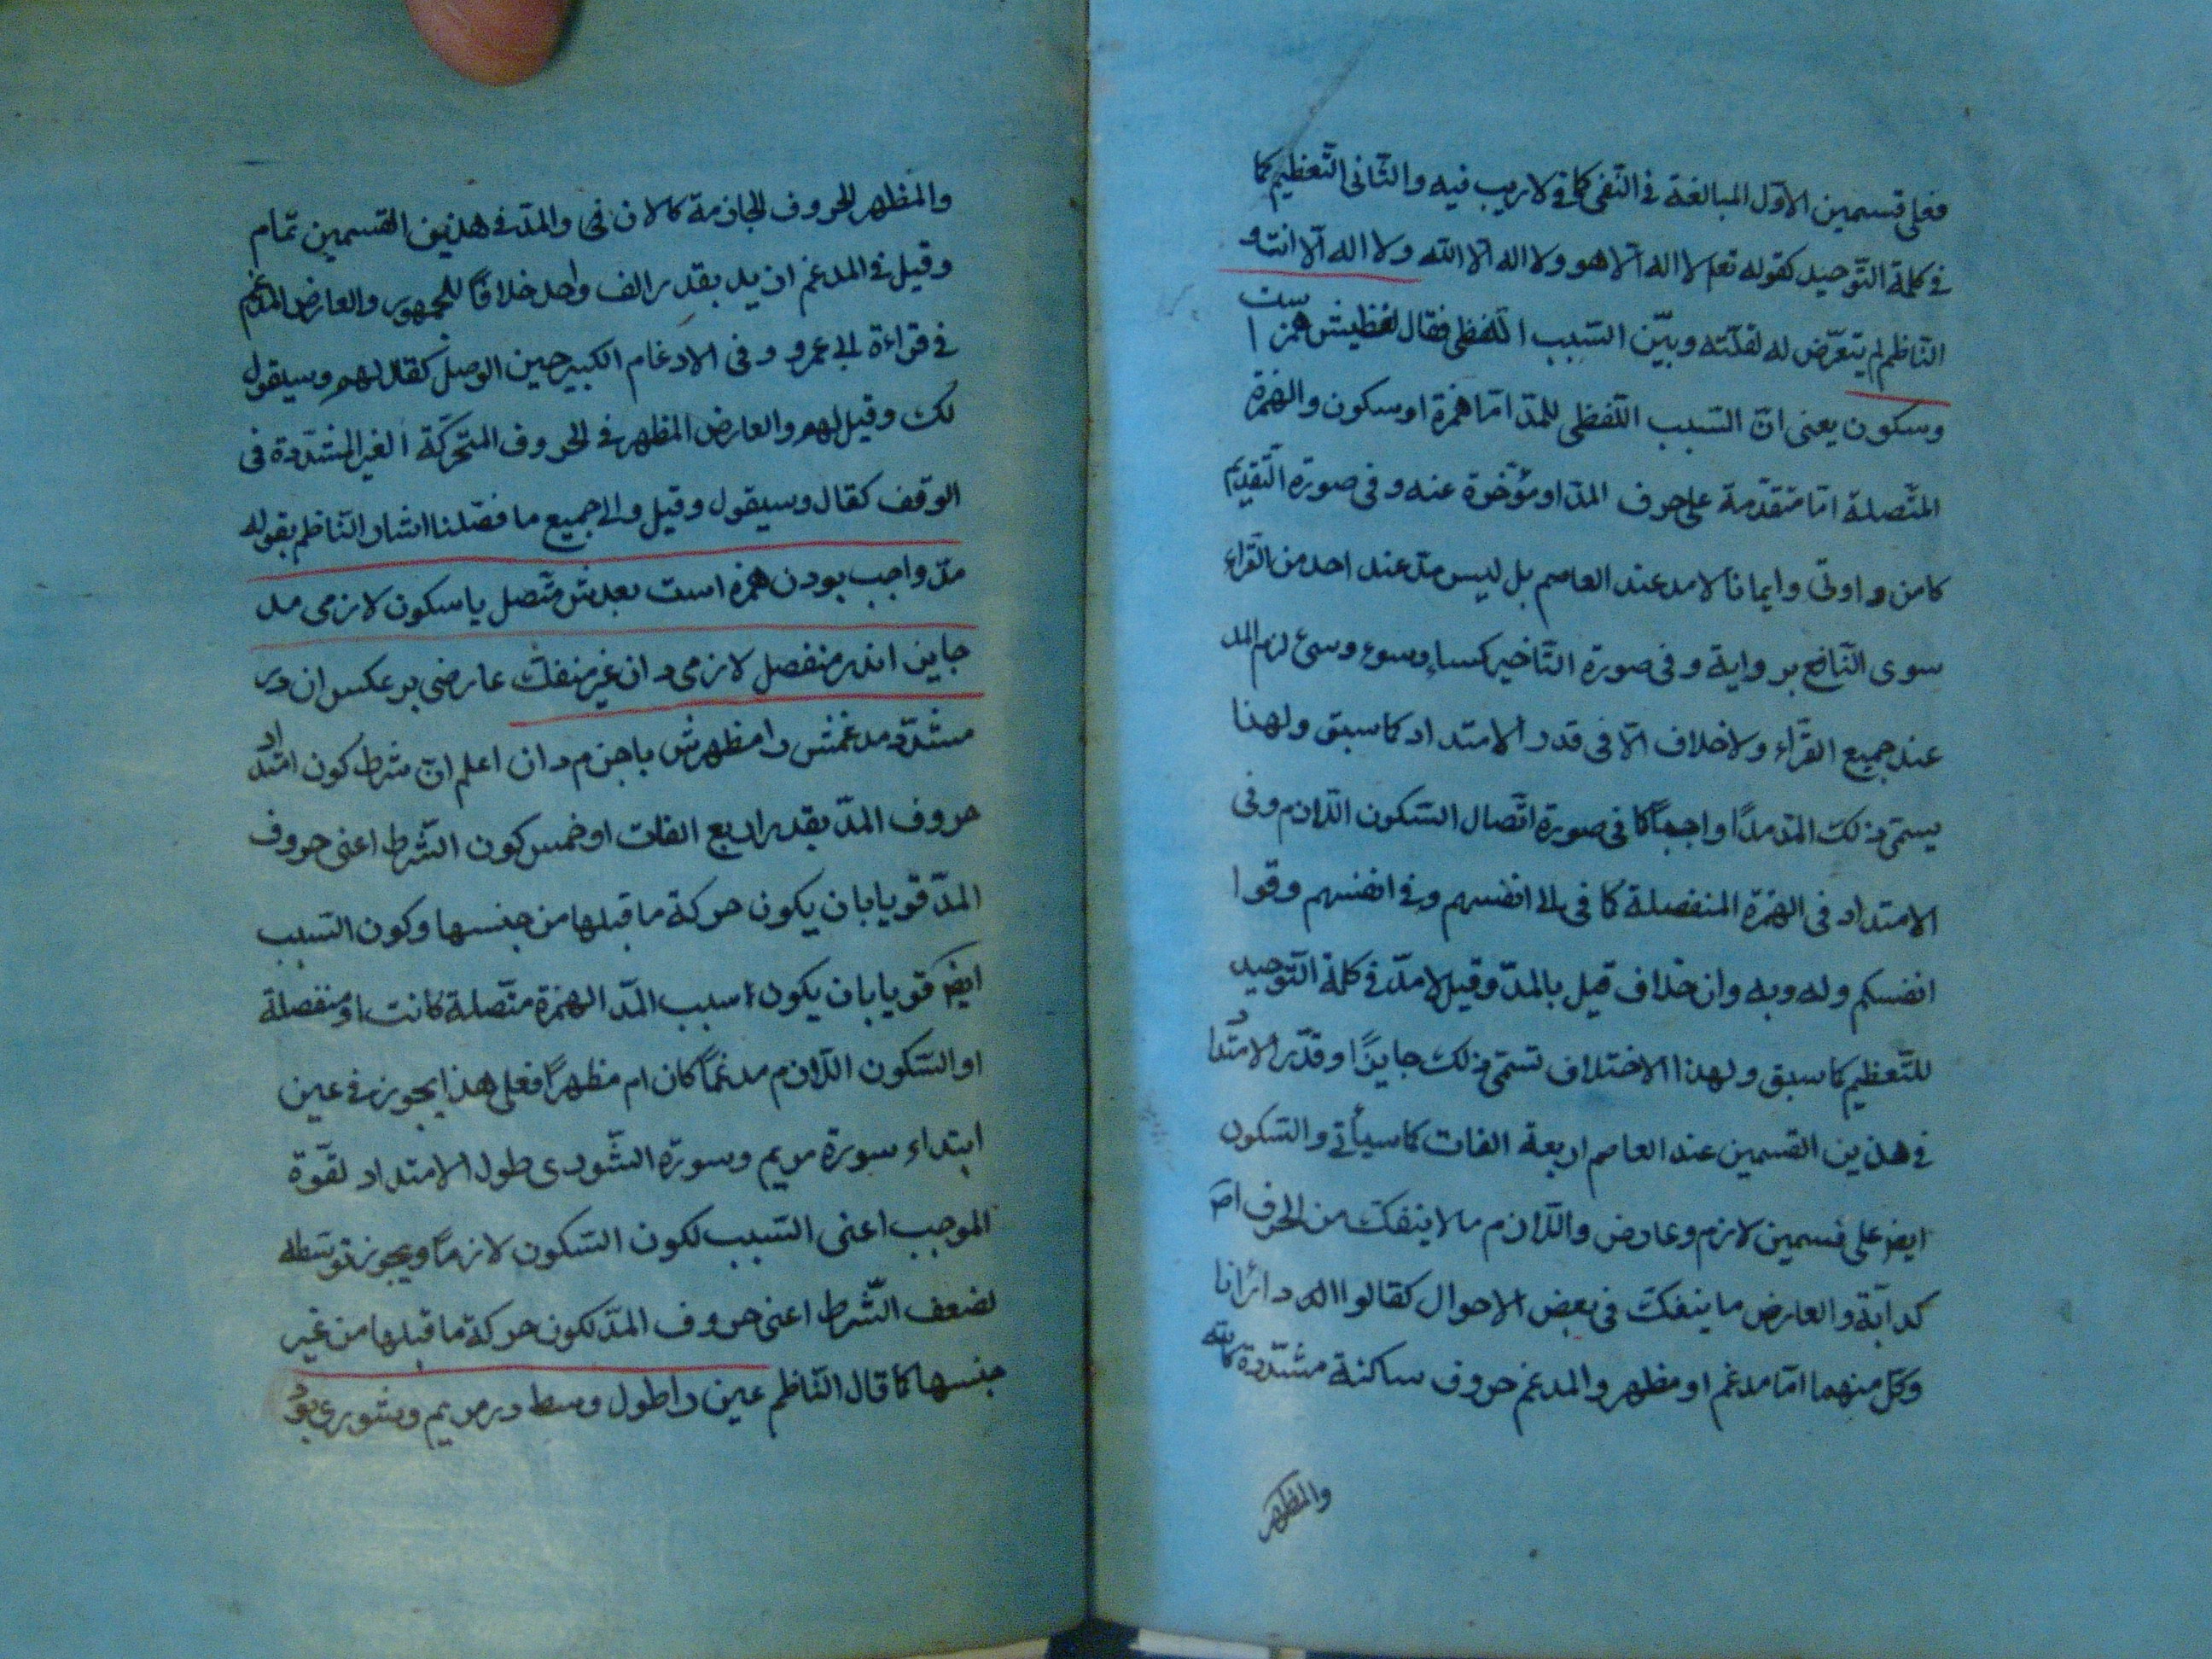 فعلى قسمين الاوّل المبالغة فى النّفى كما فى لاريب فيه والثّانى التّعظيم كما
فى كلمة التّوحيد كقوله تعلا لا اله الّا هو ولا اله الّا اللّه ولا اله الّا انت و
النّاظم لم يتعرّض له لقلّته وبيّن السّبب اللّفظى فقال لفظيش همز است
وسكون يعنى انّ السّبب اللّفظى للمدّ امّا همزة او سكون والهمزة
المتّصلة امّا متقدّمة على حرف المدّ او مؤخّرة عنه وفى صورة التّقديم
كامن واوتى وايمانا لا مد عند العاصم بل ليس مدّ عند احد من القرّاء
سوى النّافع برواية وفى صورة التّاخير كساء وسوء وسىء لزم المد
عند جميع القرّاء ولا خلاف الّا فى قدر الامتداد كما سبق ولهذا
يسمّى ذلك المدّ مدًّا واجبًا كما فى صورة اتّصال السّكون اللّازم وفى
الامتداد فى الهمزة المنفصلة كما فى الى انفسهم وفى انفسهم وقوا
انفسكم وله وبه وان خلاف قيل بالمدّ وقيل لا مدّ فى كلمة التّوحيد
للتّعظيم كما سبق ولهذا الاختلاف تسمّى ذلك جايزًا وقدّر الامتداد
فى هذين القسمين عند العاصم اربعة الفات كما سيأتى والسّكون
ايضا على قسمين لازم وعارض واللّازم ما لا ينفكّ من الحرف
كدآبّة والعارض ما ينفكّ فى بعض الاحوال كقالوا
وكلّ منهما امّا مدغم او مظهر والمدغم حروف ساكنة مشدّدة كدابّه
والمظهر
والمظهر الحروف الجازمة كالان فى والمدّ فى هذين القسمين تمام
وقيل فى المدغم ازيد بقدر الف واحد خلافًا للجمهور والعارض المدغم
فى قراءة ابى عمرو وفى الادغام الكبير حين الوصل كقال لهم وسيقول
لك وقيل لهم والعارض المظهر فى الحروف المتحرّكة الغير المشدّدة فى
الوقف كقال وسيقول وقيل والى جميع ما فصّلنا اشار النّاظم بقوله
مدّ واجب بودن همزه است بعدش متّصل يا سكون لازمى مد
جايز اندر منفصل لازمى دان غير منفكّ عارضى بر عكس ان در
مشدّد مدغمش را مظهرش با جزم دان اعلم انّ شرط كون امتداد
حروف المدّ بقدر اربع الفات او خمس كون الشّرط اعنى حروف
المدّ قويا بان يكون حركة ما قبلها من جنسها وكون السّبب
ايضا قويا بان يكون سبب المدّ الهمزة متّصلة كانت او منفصلة
او السّكون اللّازم مدغمًا كان ام مظهرًا فعلى هذا يجوز فى عين
ابتداء سورة مريم وسورة الشّورى طول الامتداد لقوّة
الموجب اعنى السّبب لكون السّكون لازمًا ويجوز توسّطه
لضعف الشّرط اعنى حروف المدّ لكون حركة ما قبلها من غير
جنسها كما قال النّاظم عين را طول وسط در مريم وشورى بود